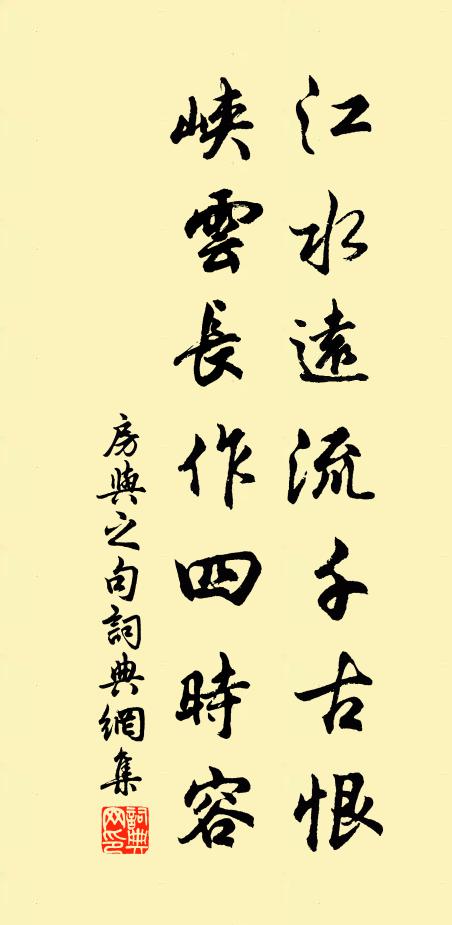 江水遠流千古恨
峽雲長作四時容
房與之句詞典網集
詞典网印